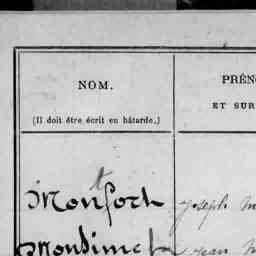 NOM.
(Il doit être écrit en bâtarde.)
PRÉN
ET SUR
Montfort
Joseph M
Jean